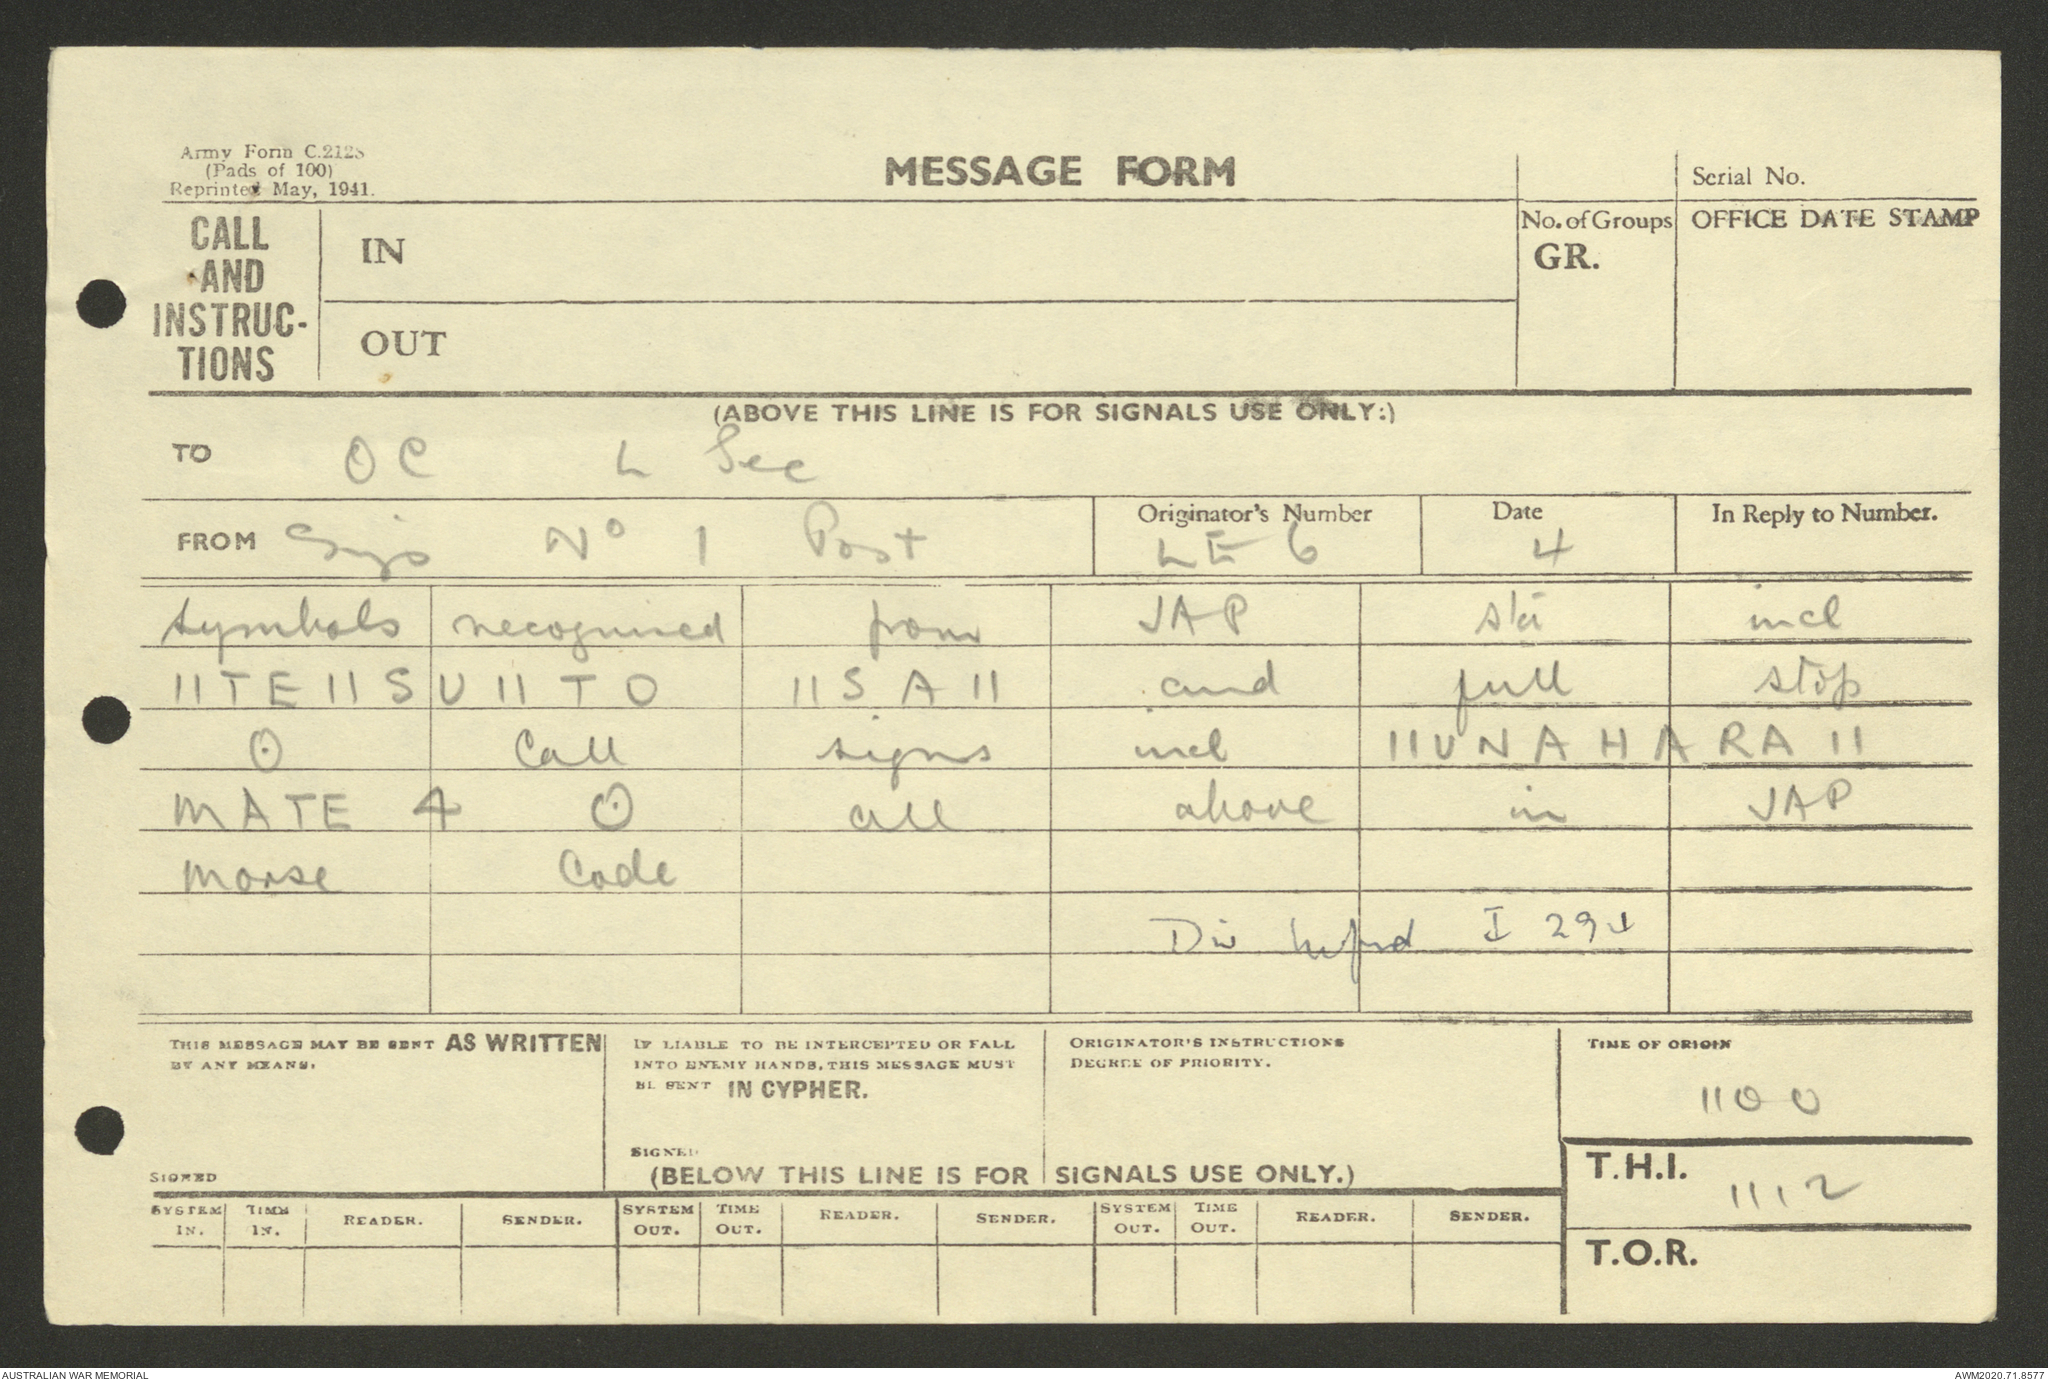 Army Form C.2128
(Pads of 100)
Reprinted May, 1941.
MESSAGE FORM
Serial No.
CALL AND INSTRUC-TIONS
IN
OUT
No. of Groups
GR.
OFFICE DATE STAMP
(ABOVE THIS LINE IS FOR SIGNALS USE ONLY:)
TO OC L Sec
FROM Sigs No 1 Post
Originator's Number LE 6
Date 4
In Reply to Number.
symbols recognised from JAP sta incl
"TE" SU" TO "SA" and full stop
⊙ Call signs incl "UNAHARA"
MATE 4 ⊙ all above in JAP
morse Code
Div infmd I 294
THIS MESSAGE MAY BE SENT AS WRITTEN
BY ANY MEANS.
SIGNED
IF LIABLE TO BE INTERCEPTED OR FALL
INTO ENEMY HANDS, THIS MESSAGE MUST
BE SENT IN CYPHER.
SIGNED
ORIGINATOR'S INSTRUCTIONS
DEGREE OF PRIORITY.
TIME OF ORIGIN
1100
T.H.I.
1112
T.O.R.
(BELOW THIS LINE IS FOR SIGNALS USE ONLY.)
SYSTEM IN. TIME IN. READER. SENDER. SYSTEM OUT. TIME OUT. READER. SENDER. SYSTEM OUT. TIME OUT. READER. SENDER.
AUSTRALIAN WAR MEMORIAL
AWM2020.71.8577